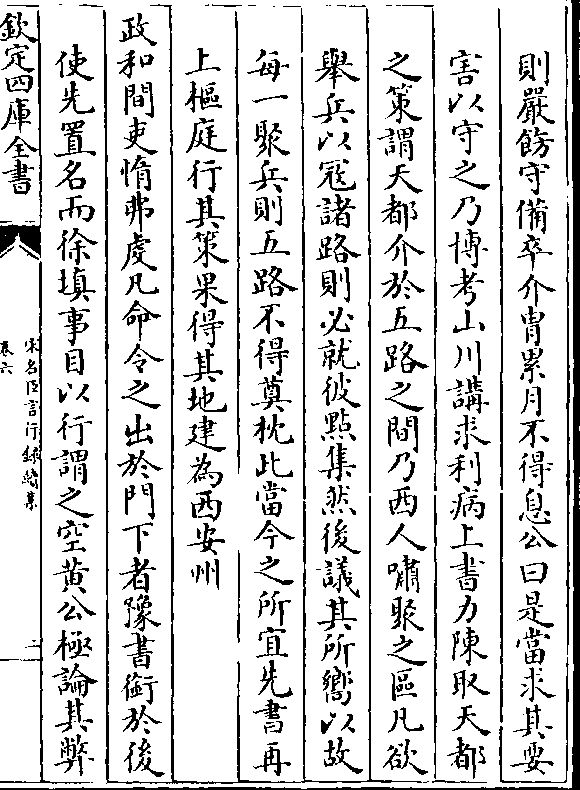 則嚴飭守備卒介胄累月不得息公曰是當求其要
害以守之乃博考山川講求利病上書力陳取天都
之策謂天都介於五路之間乃西人嘯聚之區凡欲
舉兵以寇諸路則必就彼點集然後議其所嚮以故
每一聚兵則五路不得奠枕此當今之所宜先書再
上樞庭行其策果得其地建為西安州
政和間吏惰弗虔凡命令之出於門下者豫書銜於後
使先置名而徐填事目以行謂之空黄公極論其弊
欽定四庫全書
宋名臣言行録續集
卷六
二